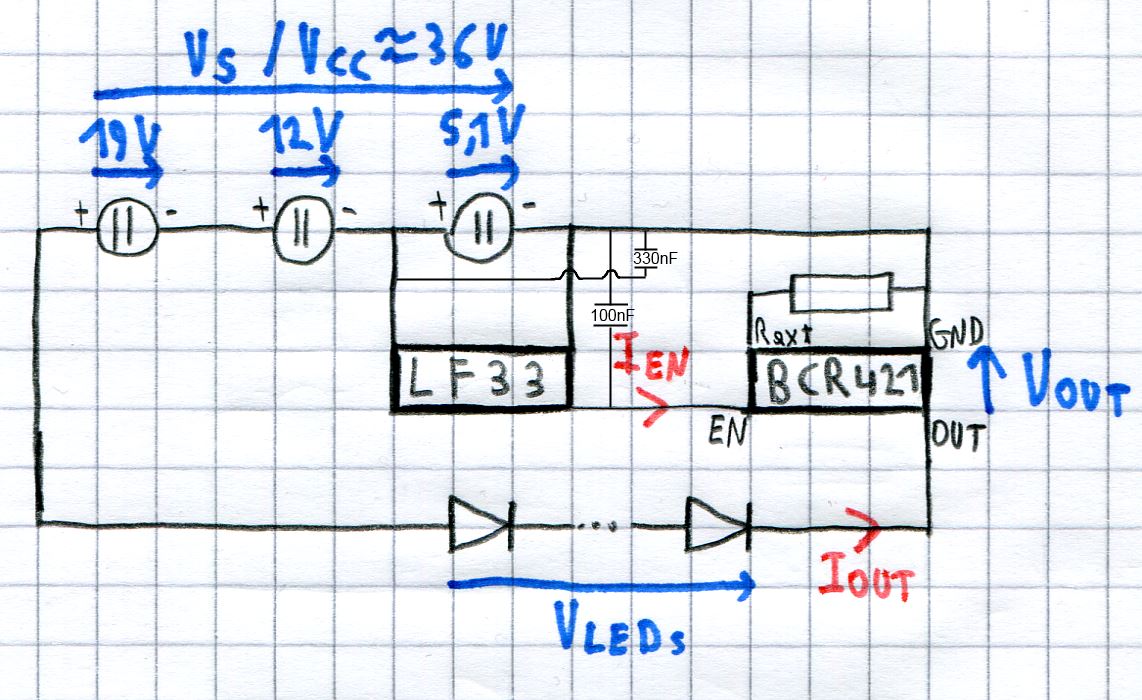 Vs / Vcc ≈ 36V
19V 12V 5,1V
+ - + - + -
330nF
100nF
Rext GND
IEN
LF33 BCR421 VOUT
EN OUT
...
IOUT
VLEDs